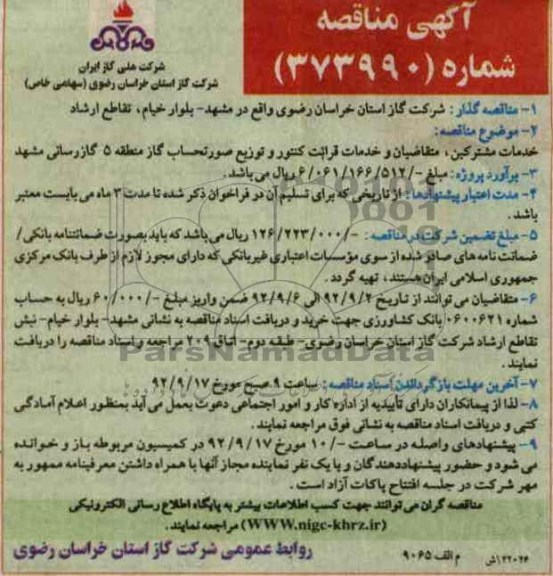 آگهی مناقصه
شماره (۳۷۳۹۹۰)
شرکت ملی گاز ایران
شرکت گاز استان خراسان رضوی (سهامی خاص)
۱- مناقصه گذار: شرکت گاز استان خراسان رضوی واقع در مشهد- بلوار خیام، تقاطع ارشاد
۲- موضوع مناقصه:
خدمات مشترکین، متقاضیان و خدمات قرائت کنتور و توزیع صورتحساب گاز منطقه ۵ گازرسانی مشهد
۳- برآورد پروژه: مبلغ -/۶/۰۶۱/۱۶۶/۵۱۲ ریال می باشد.
۴- مدت اعتبار پیشنهادها: از تاریخی که برای تسلیم آن در فراخوان ذکر شده تا مدت ۳ ماه می بایست معتبر
باشد.
۵- مبلغ تضمین شرکت در مناقصه: -/۱۲۶/۲۲۳/۰۰۰ ریال می باشد که باید بصورت ضمانتنامه بانکی/
ضمانت نامه های صادر شده از سوی مؤسسات اعتباری غیربانکی که دارای مجوز لازم از طرف بانک مرکزی
جمهوری اسلامی ایران هستند، تهیه گردد.
۶- متقاضیان می توانند از تاریخ ۹۲/۹/۲ الی ۹۲/۹/۶ ضمن واریز مبلغ -/۶۰/۰۰۰ ریال به حساب
شماره ۰۶۰۰۶۲۱ بانک کشاورزی جهت خرید و دریافت اسناد مناقصه به نشانی مشهد- بلوار خیام- نبش
تقاطع ارشاد شرکت گاز استان خراسان رضوی- طبقه دوم- اتاق ۲۰۹ مراجعه و اسناد مناقصه را دریافت
نمایند.
ParsNamadData
۷- آخرین مهلت بازگرداندن اسناد مناقصه: ساعت ۹ صبح مورخ ۹۲/۹/۱۷
۸- لذا از پیمانکاران دارای تأییدیه از اداره کار و امور اجتماعی دعوت بعمل می آید بمنظور اعلام آمادگی
کتبی و دریافت اسناد مناقصه به نشانی فوق مراجعه نمایند.
۹- پیشنهادهای واصله در ساعت -/۱۰ مورخ ۹۲/۹/۱۷ در کمیسیون مربوطه باز و خوانده
می شود و حضور پیشنهاددهندگان و یا یک نفر نماینده مجاز آنها با همراه داشتن معرفینامه ممهور به
مهر شرکت در جلسه افتتاح پاکات آزاد است.
مناقصه گران می توانند جهت کسب اطلاعات بیشتر به پایگاه اطلاع رسانی الکترونیکی
(WWW.nigc-khrz.ir) مراجعه نمایند.
روابط عمومی شرکت گاز استان خراسان رضوی
م الف ۹۰۶۵